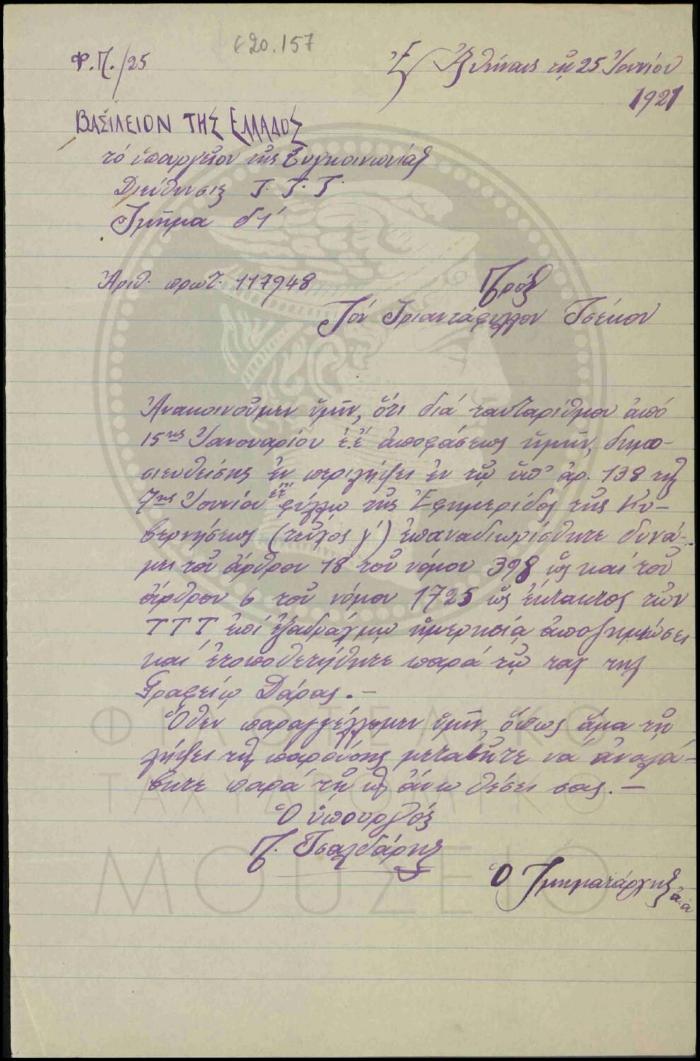 620.157
Φ.Π./25
Ἐν Ἀθήναις τῇ 25 Ἰουνίου
1921
ΒΑΣΙΛΕΙΟΝ ΤΗΣ ΕΛΛΑΔΟΣ
τό ὑπουργεῖον τῆς Συγκοινωνίας
Διεύθυνσις Τ.Τ.Τ.
Τμῆμα
Ἀριθ. πρωτ. 117948
Πρός
Τόν Τριαντάφυλλον Τσέκον
Ἀνακοινοῦμεν ὑμῖν, ὅτι διά ταυταρίθμου ἀπό
15ης Ἰανουαρίου ἐ.ἔ. ἀποφάσεως ἡμῶν, δημο-
σιευθείσης ἐν περιλήψει ἐν τῷ ὑπ' ἀρ. 138 τῆς
7ης Ἰουνίου ἐ.ἔ. φύλλῳ τῆς Ἐφημερίδος τῆς Κυ-
βερνήσεως (τεῦχος γ') ἐπαναδιωρίσθητε δυνά-
μει τοῦ ἄρθρου 18 τοῦ νόμου 398 ὡς καί τοῦ
ἄρθρου 6 τοῦ νόμου 1725 ὡς ἔκτακτος τῶν
ΤΤΤ ἐπί ἑξαδράχμῳ ἡμερησίᾳ ἀποζημιώσει
καί ἐτοποθετήθητε παρά τῷ ταχ. τηλ.
Γραφείῳ Δάρας.-
Ὅθεν παραγγέλλομεν ὑμῖν, ὅπως ἅμα τῇ
λήψει τῆς παρούσης μεταβῆτε νά ἀναλά-
βητε παρά τῇ ὡς ἄνω θέσει σας.-
Ὁ ὑπουργός
Π. Τσαλδάρης
Ὁ Τμηματάρχης
α.α
ΦΙΛΟΤΕΛΙΚΟ
ΤΑΧΥΔΡΟΜΙΚΟ
ΜΟΥΣΕΙΟ